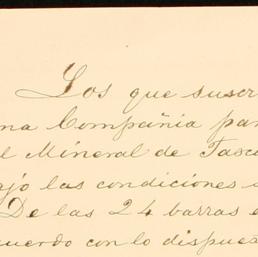 Los que suscr
na Compañia par
l Mineral de Tasc
ajo las condiciones
De las 24 barras e
uerdo con lo dispues